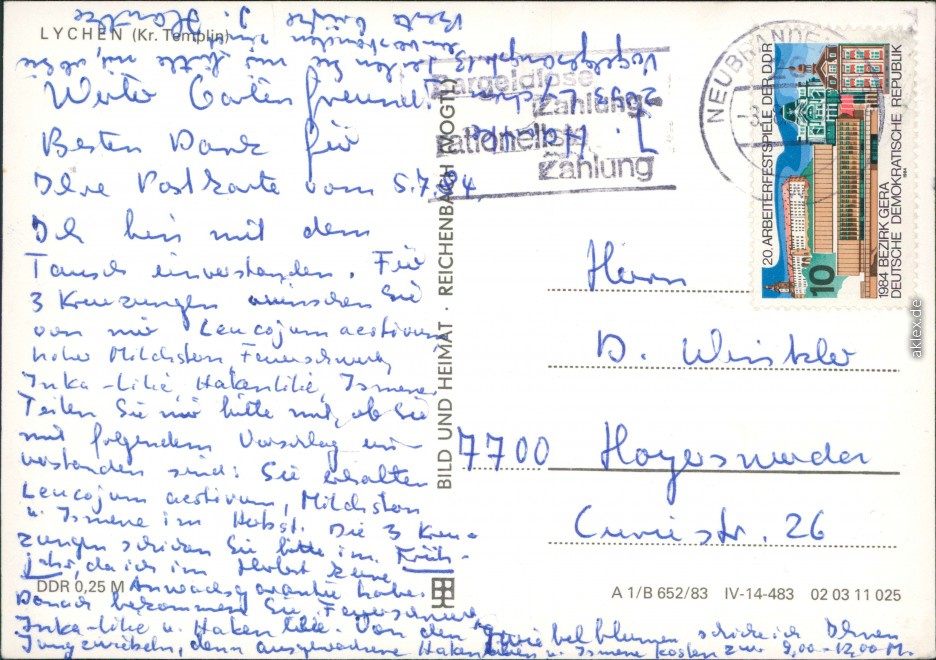 LYCHEN (Kr. Templin)
Werter Gartenfreund!
Besten Dank für
Ihre Postkarte vom 5.7.84,
Ich bin mit dem
Tausch einverstanden. Für
3 Kreuzungen wünschen Sie
von mir Leucojum aestivum
hoher Milchstern, Feuerschwert,
Inka-Lilie, Hakenlilie, Ismene.
Teilen Sie mir bitte mit, ob Sie
mit folgendem Vorschlag ein-
verstanden sind: Sie erhalten
Leucojum aestivum, Milchstern
u. Ismene im Herbst. Die 3 Kreu-
zungen schicken Sie bitte im Früh-
jahr, da ich im Herbst keine
Anwachsgarantie habe.
Danach bekommen Sie Feuerschwert
Inka-Lilie u. Hakenlilie. Von den Zwiebelblumen schicke ich Ihnen
Jungzwiebeln, denn ausgewachsene Hakenlilien u. Ismene kosten zur 9,00-12,00 M.
Teilen Sie mir bitte mit, ob Sie
einverstanden sind.
Beste Grüße J.
2093 Lychen
Vogelgesang
DDR 0,25 M
BILD UND HEIMAT · REICHENBACH (VOGTL)
A 1/B 652/83 IV-14-483 02 03 11 025
Bargeldlose
Zahlung-
rationelle
Zahlung
NEUBRANDEN
20. ARBEITERFESTSPIELE DER DDR
1984 BEZIRK GERA
DEUTSCHE DEMOKRATISCHE REPUBLIK
1984
10
Herrn
D. Winkler
7700 Hoyerswerda
Curiestr. 26
aklex.de